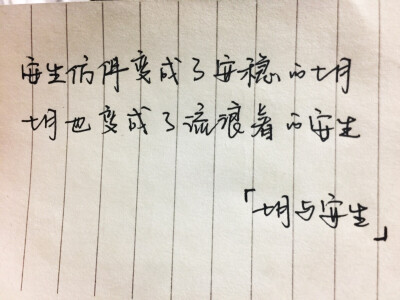 安生仿佛变成了安稳的七月
七月也变成了流浪着的安生
「七月与安生」